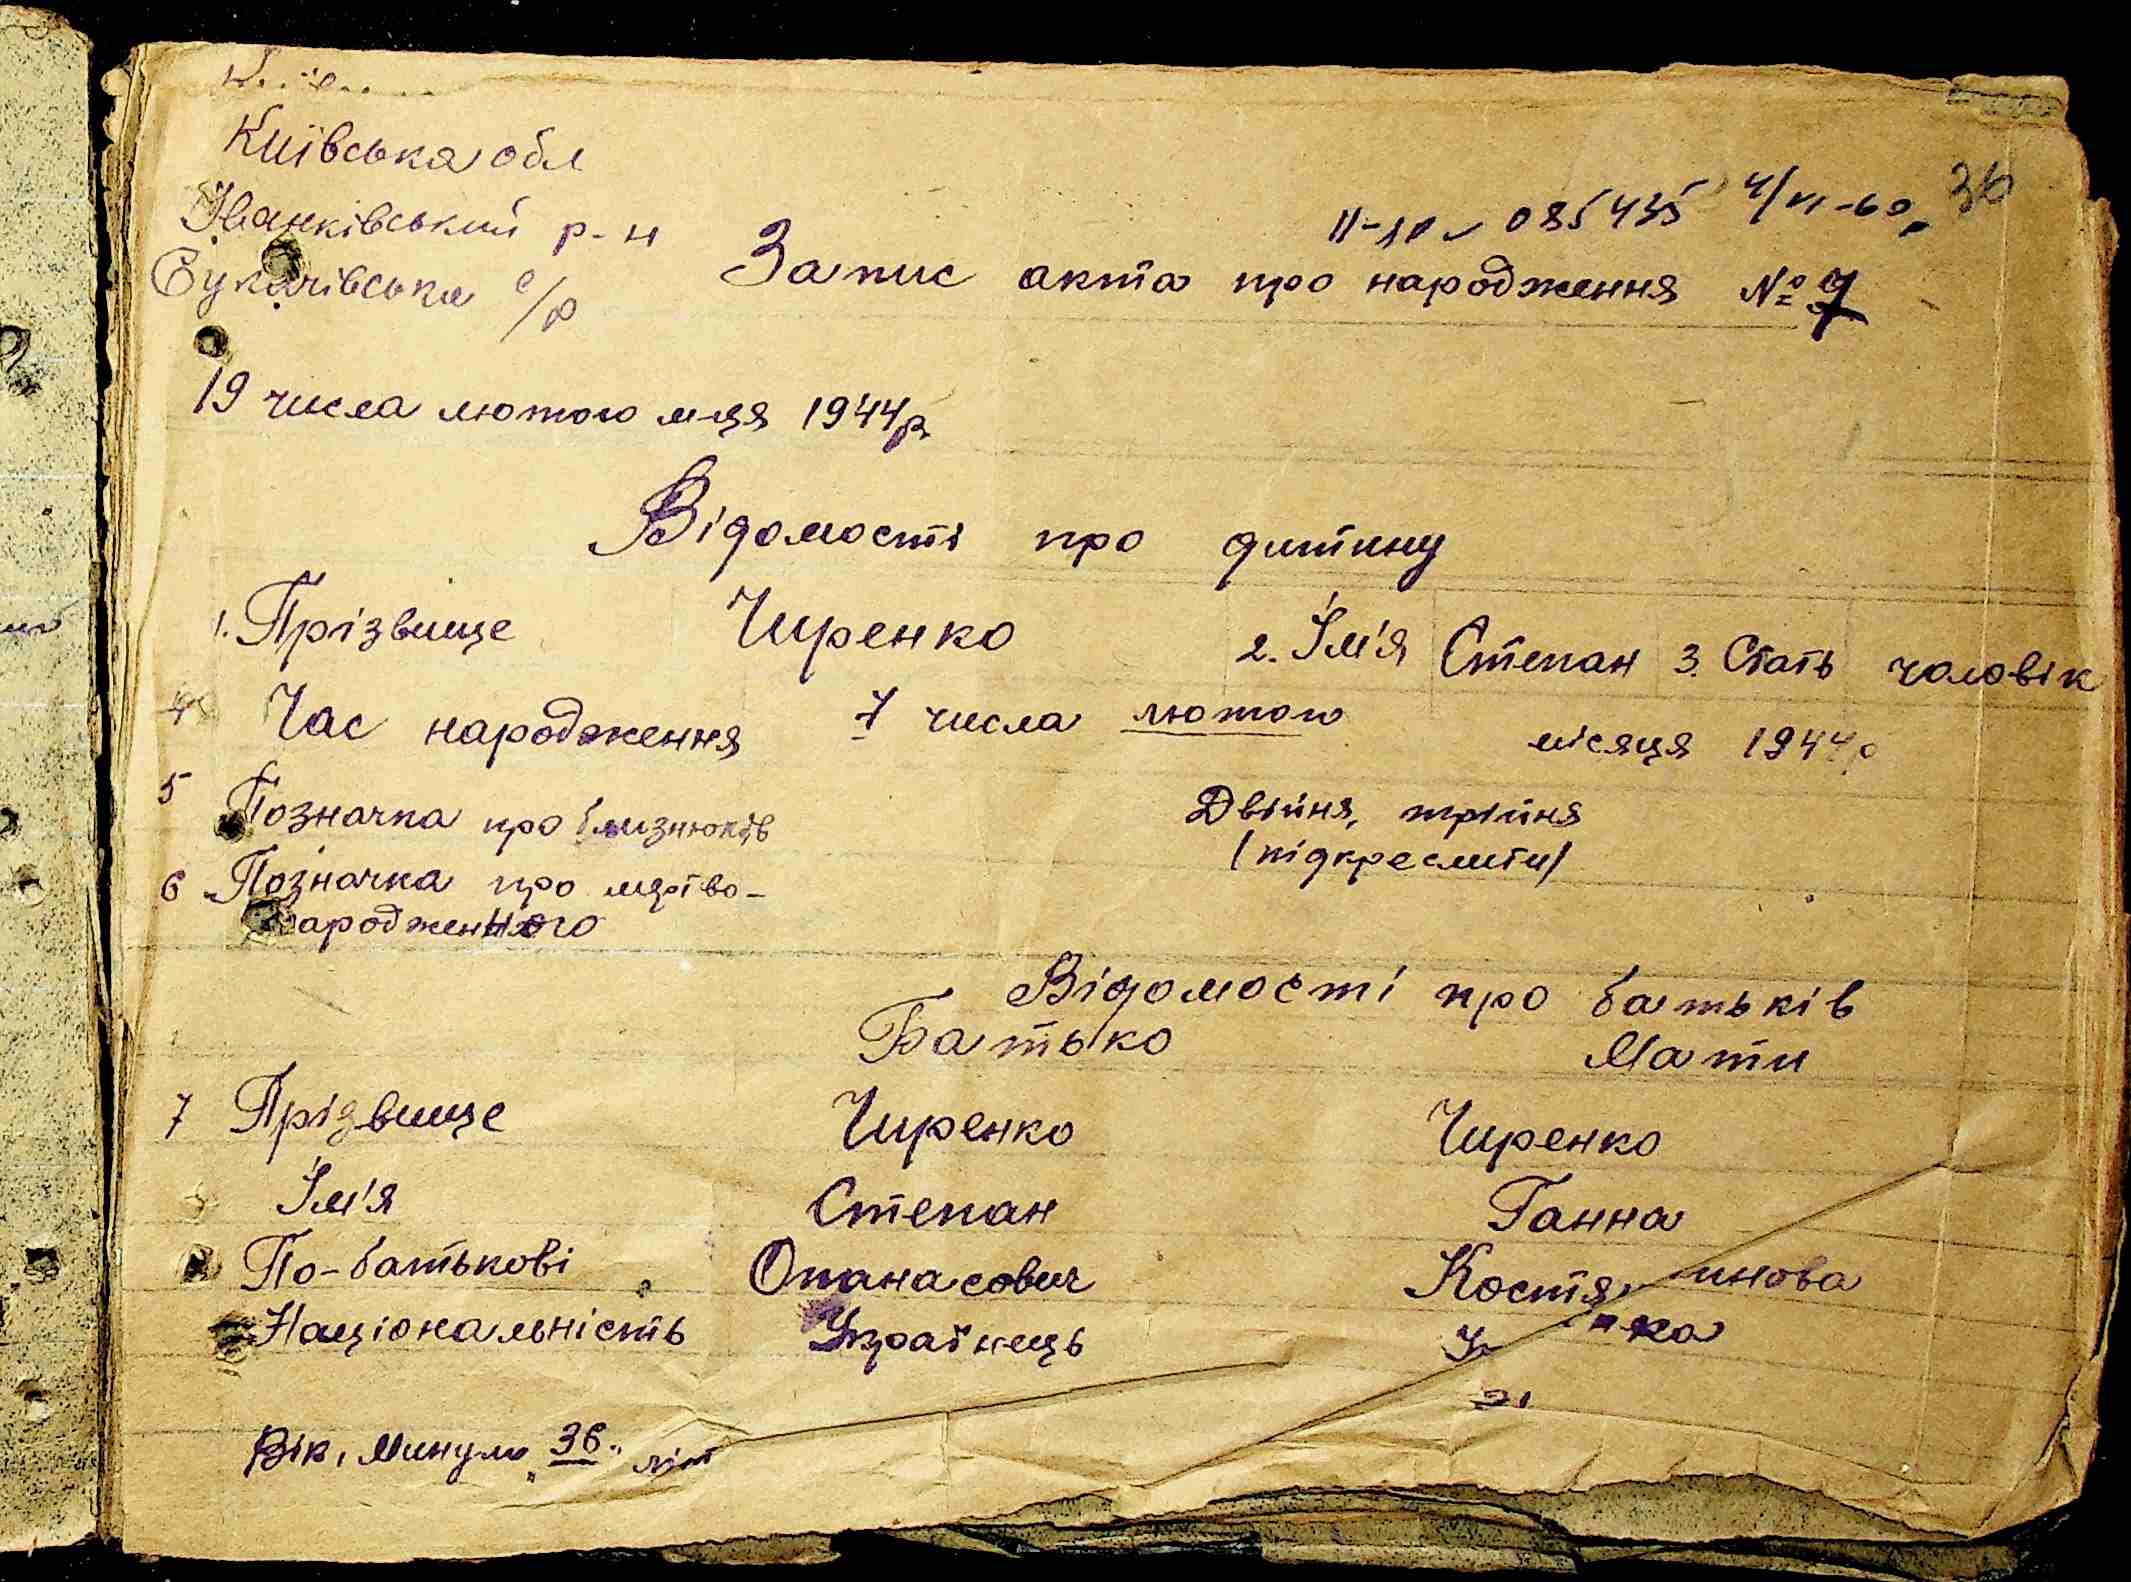 Київська обл
Іванківський р-н
Букачівська с/р
II- 085435 4/VI-60. 36
Запис акта про народження № 7
19 числа лютого м-ця 1944 р.
Відомості про дитину
1. Прізвище Чиренко 2. Ім'я Степан 3. Стать чоловік
4 Час народження 7 числа лютого місяця 1944 р
5 Позначка про близнюків Двійня, трійня
(підкреслити)
6 Позначка про мертво-
народженного
Відомості про батьків
Батько Мати
7 Прізвище Чиренко Чиренко
Ім'я Степан Ганна
По-батькові Опанасович Костянинова
Національність Українець У нка
Вік, Минуло "36" літ